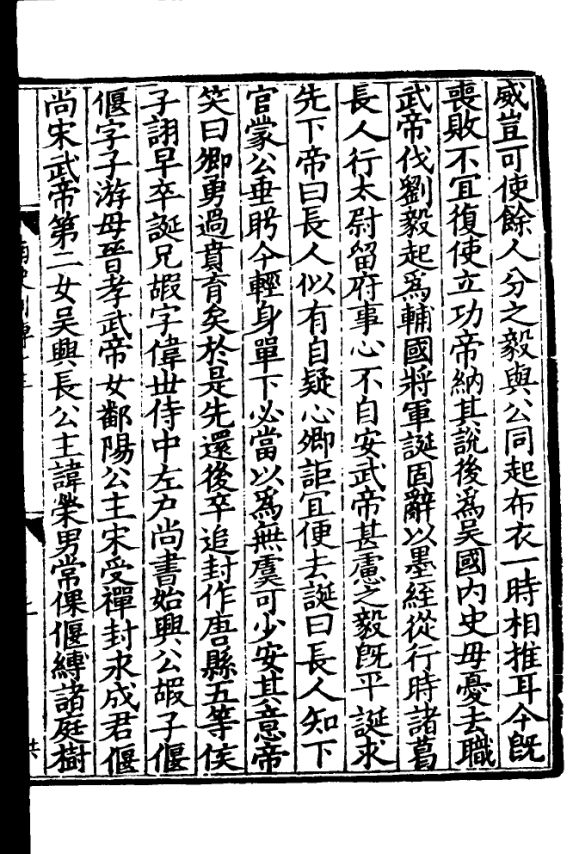 威豈可使餘人分之毅與公同起布衣一時相推耳今旣
喪敗不冝復使立功帝納其說後爲吳國內史母憂去職
武帝伐劉毅起爲輔國將軍誕固辭以墨絰從行時諸葛
長人行太尉留府事心不自安武帝甚慮之毅旣平誕求
先下帝曰長人似有自疑心卿詎冝便去誕曰長人知下
官蒙公垂盻今輕身單下必當以爲無虞可少安其意帝
笑曰卿勇過賁育矣於是先還後卒追封作唐縣五等侯
子詡早卒誕兄嘏字偉世侍中左户尚書始興公嘏子偃
偃字子游母晉孝武帝女鄱陽公主宋受禪封永成君偃
尚宋武帝第二女吳興長公主諱榮男常倮偃縛諸庭樹